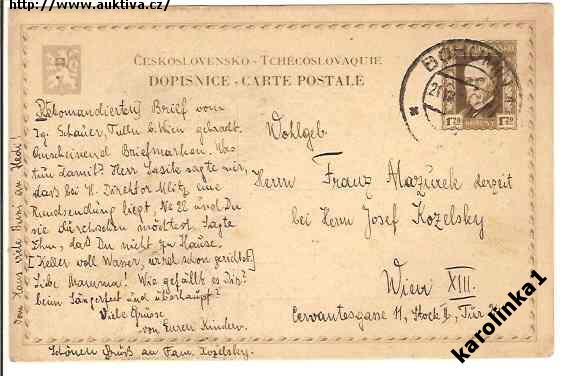 http://www.auktiva.cz/
ČESKOSLOVENSKO - TCHÉCOSLOVAQUIE
DOPISNICE - CARTE POSTALE
BOHUMÍN
1.20 1.20
Rekomandierten Brief vom
Ig. Schauer, Tulln b. Wien gebracht.
Anscheinend Briefmarken. Was
tun damit? Herr Lasite sagte mir,
daß bei H. Direktor Mlitz eine
Rundsendung liegt, Ne 22 und Du
sie durchsehen möchtest. Sagte
Ihm, daß Du nicht zu Hause.
[Keller voll Wasser, wird schon gerichtet]
Liebe Mamma! Wie gefällt es Dir?
beim Sängerfest und überhaupt?
Viele Grüsse
von Euren Kindern.
Schönen Gruß an Fam. Kozelsky.
Von Haus viele Bussi an Hedi!
Wohlgeb
Herrn Franz Mazurek derzeit
bei Herrn Josef Kozelsky
Wien XIII.
Cervantesgasse 11, Stock II, Tür
karolinka1